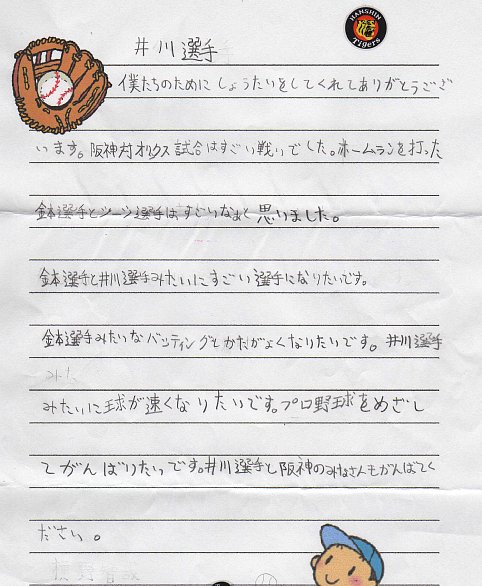 HANSHIN
Tigers
井川選手
僕たちのためにしょうたいをしてくれてありがとうござ
います。阪神対オリクス試合はすごい戦いでした。ホームランを打った
金本選手とシーツ選手はすごいなぁと思いました。
金本選手と井川選手みたいにすごい選手になりたいです。
金本選手みたいなバッティングとかたがよくなりたいです。井川選手
みたいに球が速くなりたいです。プロ野球をめざし
てがんばりたいです。井川選手と阪神のみなさんもがんばてく
ださい。